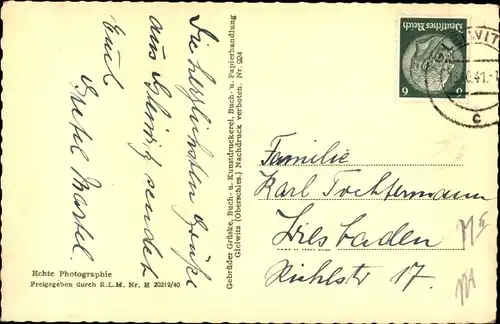 Die herzlichsten Grüße
aus Gleiwitz sendet
Euch
Gretel Martel.
Echte Photographie
Freigegeben durch R.L.M. Nr. E 20219/40
Gebrüder Grüske, Buch- u. Kunstdruckerei, Buch- u. Papierhandlung
Gleiwitz (Oberschles.) Nachdruck verboten. Nr. 924
Deutsches Reich
6 6
41.
c
Familie
Karl Tochtermann
Wiesbaden
Riehlstr 17.